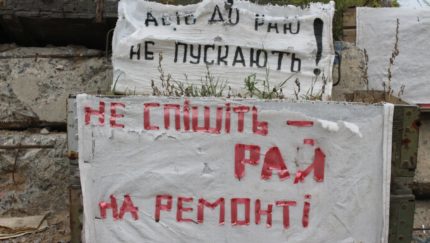 ДО РАЮ
НЕ ПУСКАЮТЬ!
НЕ СПІШІТЬ –
РАЙ
НА РЕМОНТІ